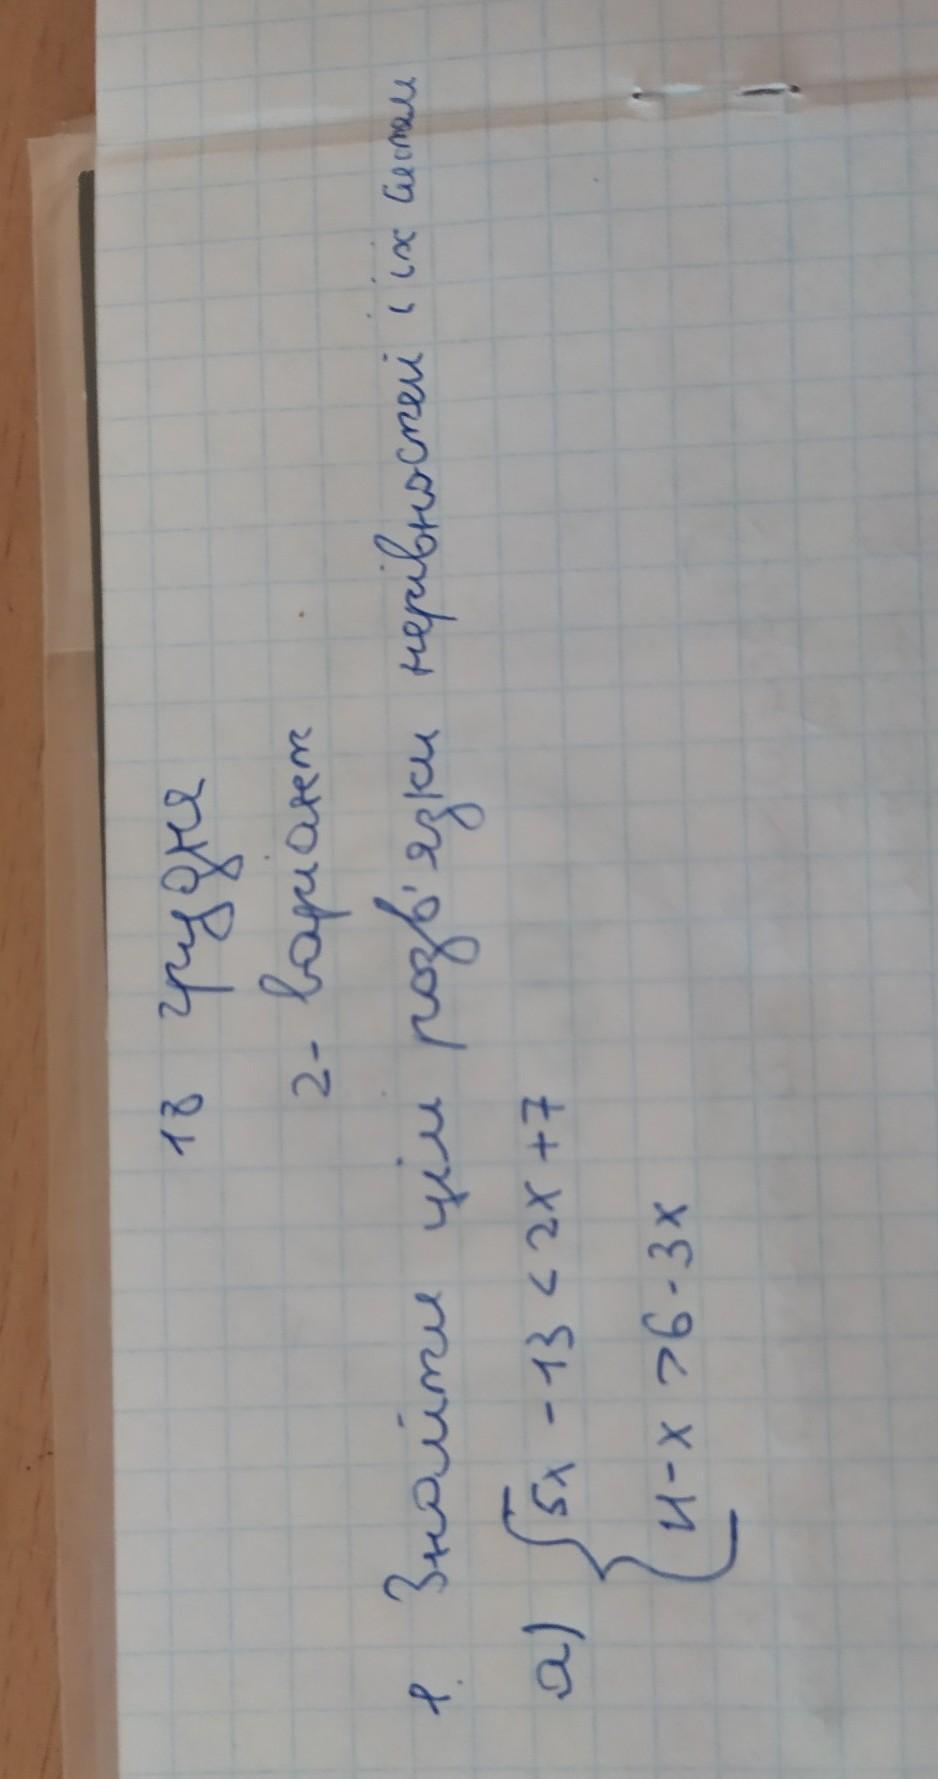 18 грудня
2- варіант
1. Знайти цілі розв'язки нерівностей і їх систем
а) { 5x - 13 < 2x + 7
4 - x > 6 - 3x